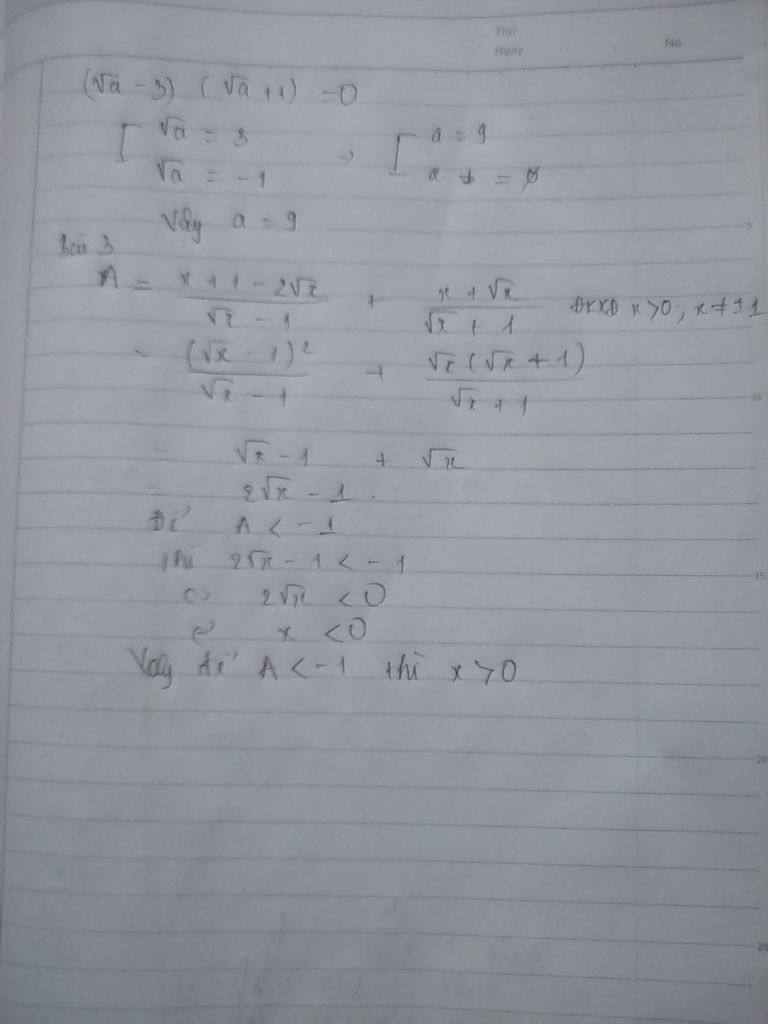 Thứ
Ngày No.
(√a - 3) (√a + 1) = 0
[ √a = 3 → [ a = 9
√a = -1 a = ∅
Vậy a = 9
5
Bài 3
A = (x + 1 - 2√x)/(√x - 1) + (x + √x)/(√x + 1) ĐKXĐ x > 0 ; x ≠ ± 1
= (√x - 1)²/(√x - 1) + √x(√x + 1)/(√x + 1)
10
= √x - 1 + √x
= 2√x - 1 .
Để A < - 1
thì 2√x - 1 < - 1
15
⇔ 2√x < 0
⇔ x < 0
Vậy để A < -1 thì x > 0
20
25